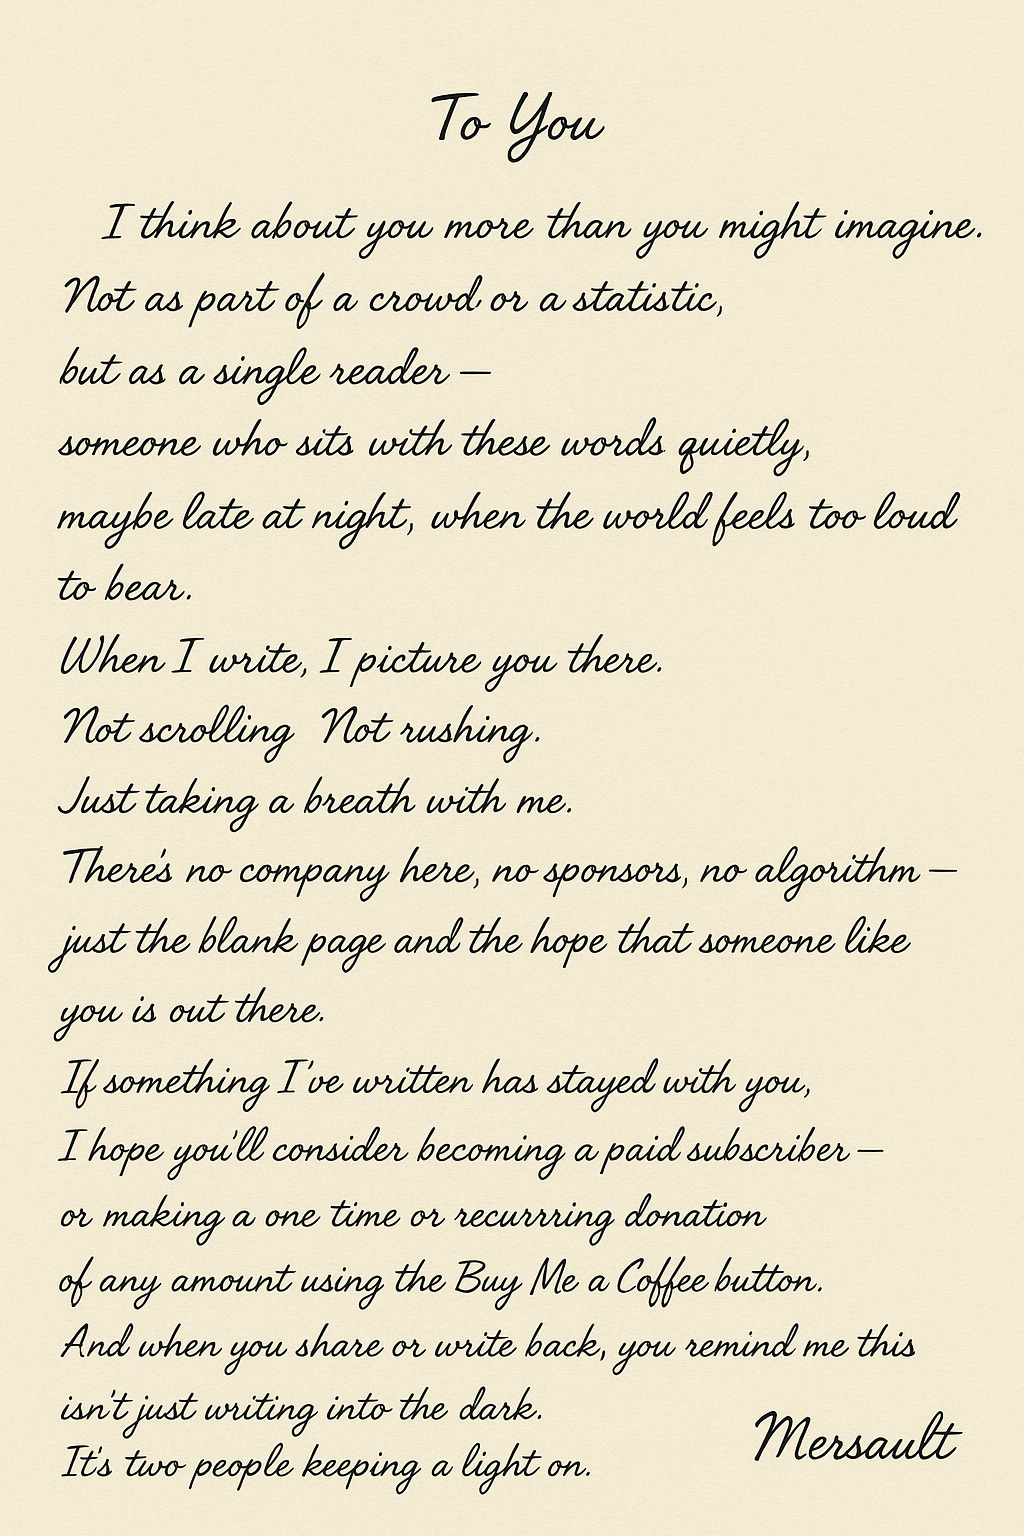 To You
I think about you more than you might imagine.
Not as part of a crowd or a statistic,
but as a single reader —
someone who sits with these words quietly,
maybe late at night, when the world feels too loud
to bear.
When I write, I picture you there.
Not scrolling Not rushing.
Just taking a breath with me.
There's no company here, no sponsors, no algorithm —
just the blank page and the hope that someone like
you is out there.
If something I've written has stayed with you,
I hope you'll consider becoming a paid subscriber —
or making a one time or recurrring donation
of any amount using the Buy Me a Coffee button.
And when you share or write back, you remind me this
isn't just writing into the dark.
It's two people keeping a light on.
Mersault